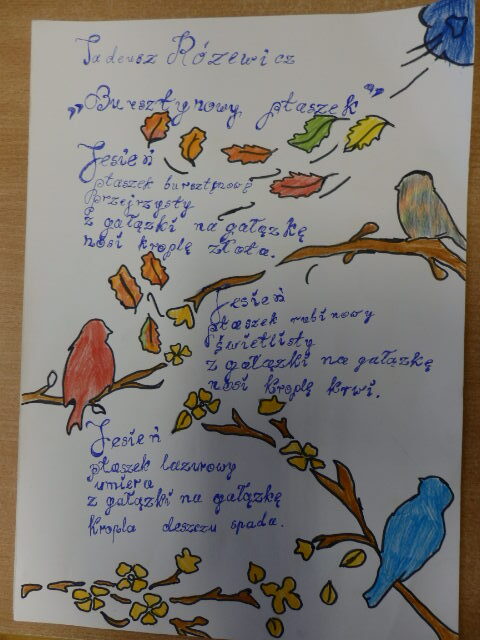 Tadeusz Różewicz
„Bursztynowy ptaszek”
Jesień
ptaszek bursztynowy
Przejrzysty
z gałązki na gałązkę
nosi kroplę złota.
Jesień
ptaszek rubinowy
świetlisty
z gałązki na gałązkę
nosi kroplę krwi.
Jesień
ptaszek lazurowy
umiera
z gałązki na gałązkę
Kropla deszczu spada.